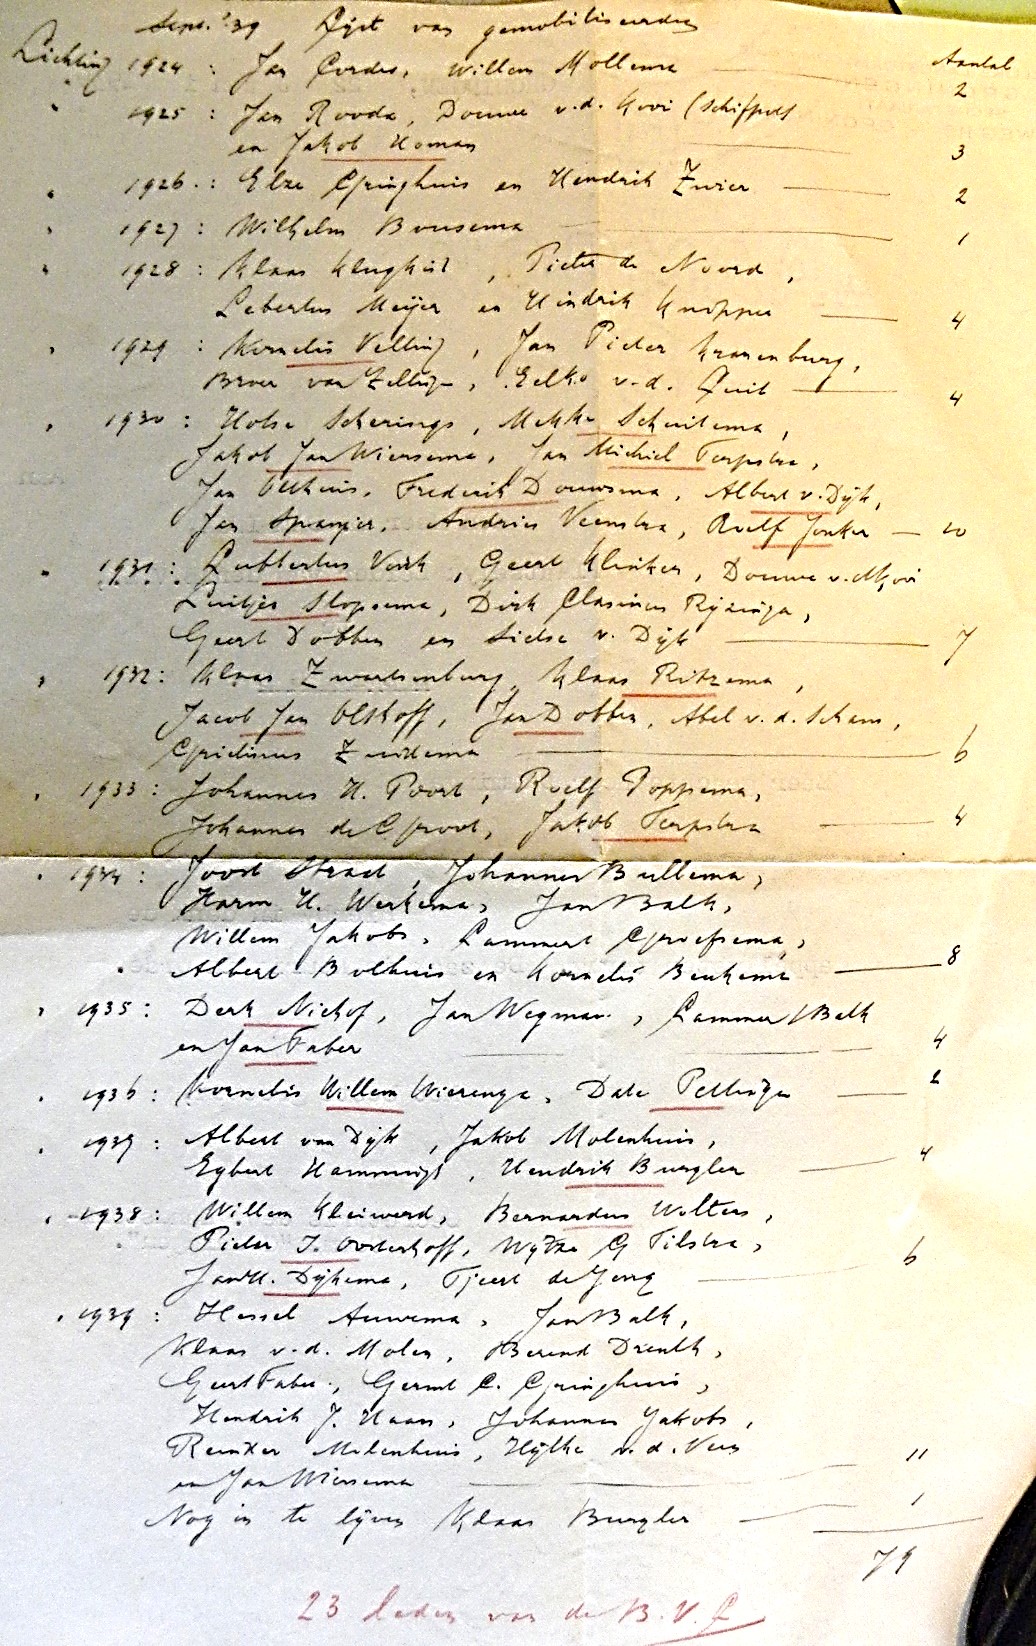 Sept. '39 Lijst van gemobiliseerden
Lichting 1924 : Jan Cordes, Willem Mollema Aantal 2
" 1925 : Jan Rooda, Douwe v.d. Kooi (Schifpot)
en Jakob Homan 3
" 1926 : Elze Gringhuis en Hendrik Zwier 2
" 1927 : Wilhelm Bousema 1
" 1928 : Klaas Klughist, Pieter de Noord,
Lebertus Meijer en Hindrik Knoppes 4
" 1929 : Kornelis Velting, Jan Pieter Kranenburg,
Broer van Zellinge, Eelko v.d. Luit 4
" 1930 : Hotse Scherings, Mekke Scheitema,
Jakob Jan Wiersema, Jan Michiel Terpstra,
Jan Olthuis, Frederik Douwsma, Albert v. Dijk,
Jan Spanjer, Andries Veenstra, Roelf Jonker 10
" 1931 : Lubbertus Vonk, Geert Klinker, Douwe v.d. Kooi
Luitjes Slopsema, Dirk Clasinus Rijzinga,
Geert Dobben en Sietse v. Dijk 7
" 1932 : Klaas Zwartsenburg, Klaas Ritzema,
Jacob Jan Olthoff, Jan Dobben, Abel v.d. Schans,
Gridinus Zuidema 6
" 1933 : Johannes H. Poort, Roelf Poppema,
Johannes de Groot, Jakob Terpstra 4
" 1934 : Joost Straat, Johannes Bullema,
Harm H. Werkema, Jan Balk,
Willem Jakobs, Lammert Groefsema,
Albert Bolhuis en Kornelis Beukema 8
" 1935 : Derk Niehof, Jan Wegman, Lammert Balk
en Jan Faber 4
" 1936 : Kornelis Willem Wierenga, Date Pettinga 2
" 1937 : Albert van Dijk, Jakob Molenhuis,
Egbert Hamminga, Hendrik Burgler 4
" 1938 : Willem Kleiwerd, Bernardus Wolters,
Pieter J. Oosterhoff, Wijtze G Tilstra,
Jan H. Dijkema, Tjeert de Jong 6
" 1939 : Hessel Auwema, Jan Balk,
Klaas v.d. Molen, Berend Drenth,
Geert Faber, Germt C. Gringhuis,
Hendrik J. Haan, Johannes Jakobs,
Reinder Molenhuis, Hijlke v.d. Veen
en Jan Wiersema 11
Nog in te lijven Klaas Burgler 1
79
23 leden van de B.V.L